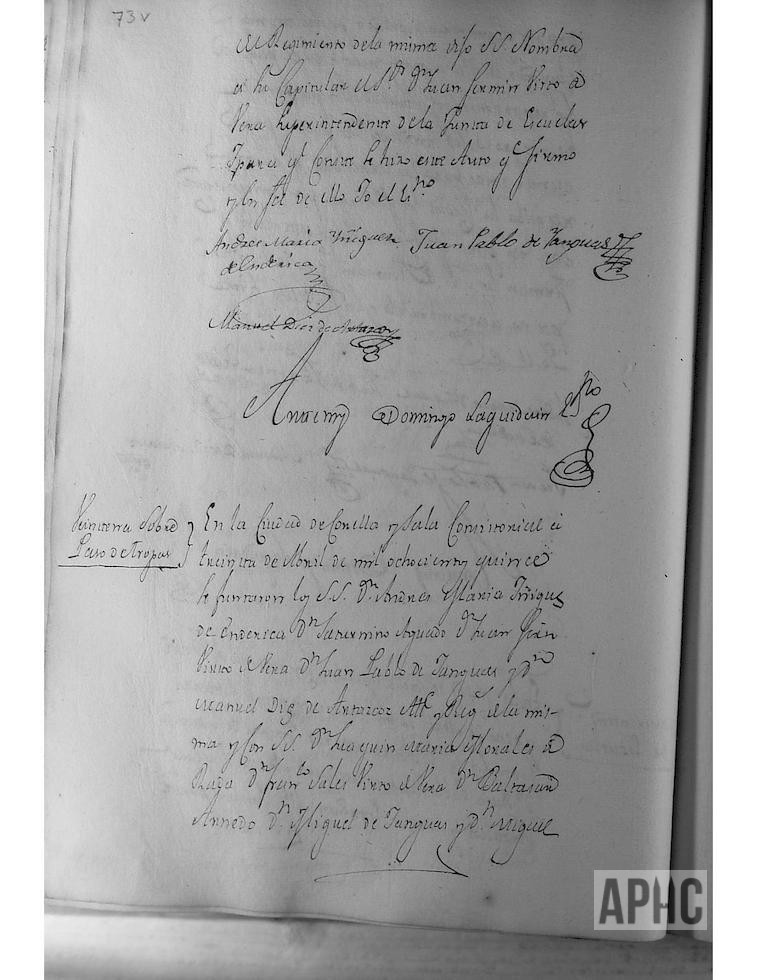 73v
el Regimiento de la misma dhos SS. Nombra
a su Capitular el Sr. Dn Juan Fermin Virto d
Vera Superintendente de la Junta de Escuelas
Ypara qe Conste se hizo este Auto qe firmo
y en fee de ello Yo el Esno
Andres Maria Yñiguez Juan Pablo de Yanguas
de Enderica
Manuel Diez de Antaroz
Ante my Domingo Laguidain Esno
Veintena Sobre
Paso de tropas
En la Ciudad de Corella y Sala Consistorial a
treinta de Abril de mil ochocientos quince
se juntaron los S.S. Dn Andres Maria Yñigues
de Enderica Dn Saturnino Aguado Dn Juan Frmn
Virto de Vera Dn Juan Pablo de Yanguas y Dn
Manuel Diez de Antaroz Alc y Reg de la mis-
ma y con SS. Dn Joaquin Maria Morales d
Rada Dn Franco Sales Virto de Vera Dn Baltasar
Arnedo Dn Miguel de Yanguas y Dn Miguel
APHC